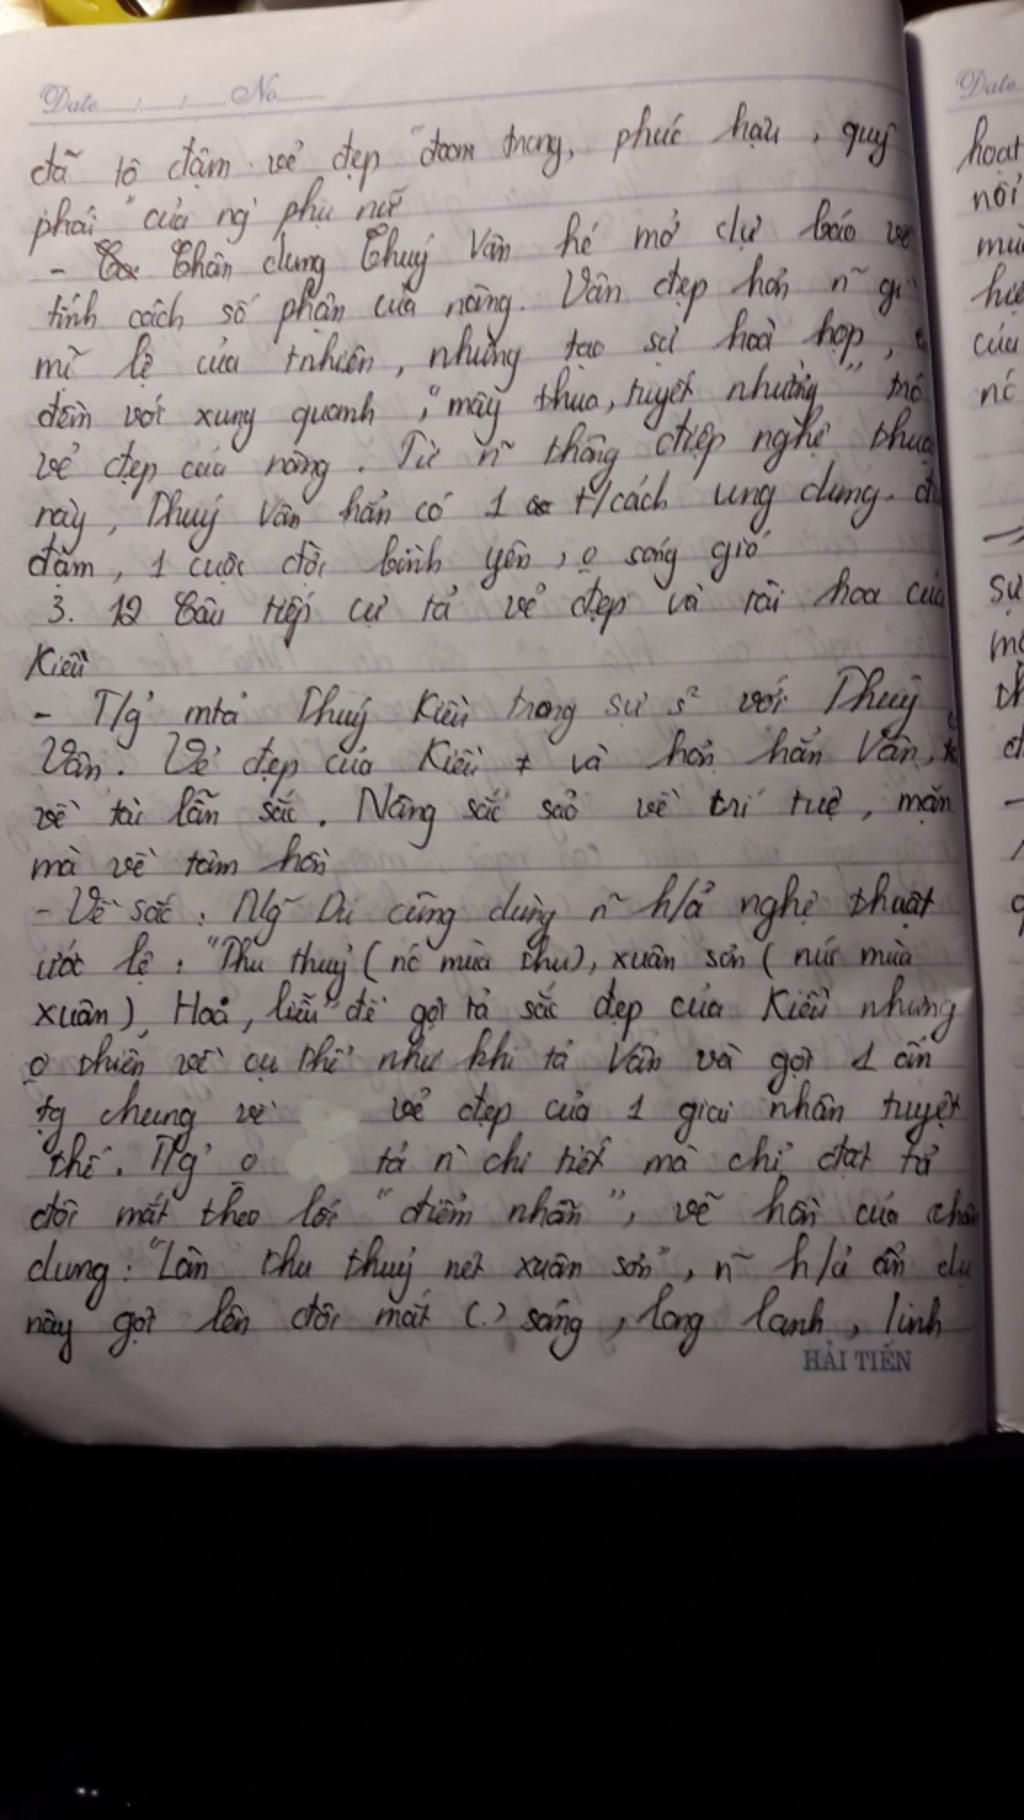 Date......./......./....... No..........
đã tô đậm vẻ đẹp "đoan trang, phúc hậu, quý
phái" của ng' phụ nữ
- Chân dung Thuý Vân hé mở dự báo về
tính cách số phận của nàng. Vân đẹp hơn n~ gì
mĩ lệ của tnhiên, nhưng tạo sự hoà hợp,
đềm với xung quanh, "mây thua, tuyết nhường"
vẻ đẹp của nàng. Từ n~ thông điệp nghệ thuật
này, Thuý Vân hẳn có 1 t/cách ung dung.
đằm, 1 cuộc đời bình yên, o sóng gió
3. 12 Câu tiếp cự tả vẻ đẹp và tài hoa của
Kiều
- T/g' mtả Thuý Kiều trong sự s² với Thuý
Vân. Vẻ đẹp của Kiều ≠ và hơn hẳn Vân,
về tài lẫn sắc. Nàng sắc sảo về trí tuệ, mặn
mà về tâm hồn
- Về sắc: Ng~ Du cũng dùng n~ h/ả nghệ thuật
ước lệ: "Thu thuỷ (nc' mùa thu), xuân sơn (núi mùa
xuân), Hoa, liễu" để gợi tả sắc đẹp của Kiều nhưng
o thiên về cụ thể như khi tả Vân và gợi 1 ấn
tg chung về vẻ đẹp của 1 giai nhân tuyệt
thế. T/g' o tả n` chi tiết mà chỉ đặt tả
đôi mắt theo lối "điểm nhãn", vẽ hồn của chân
dung: "Làn thu thuỷ nét xuân sơn", n~ h/ả ẩn dụ
này gợi lên đôi mắt (.) sáng, long lanh, linh
HẢI TIẾN
Date..
hoạt
nổi
của
nc'
sự